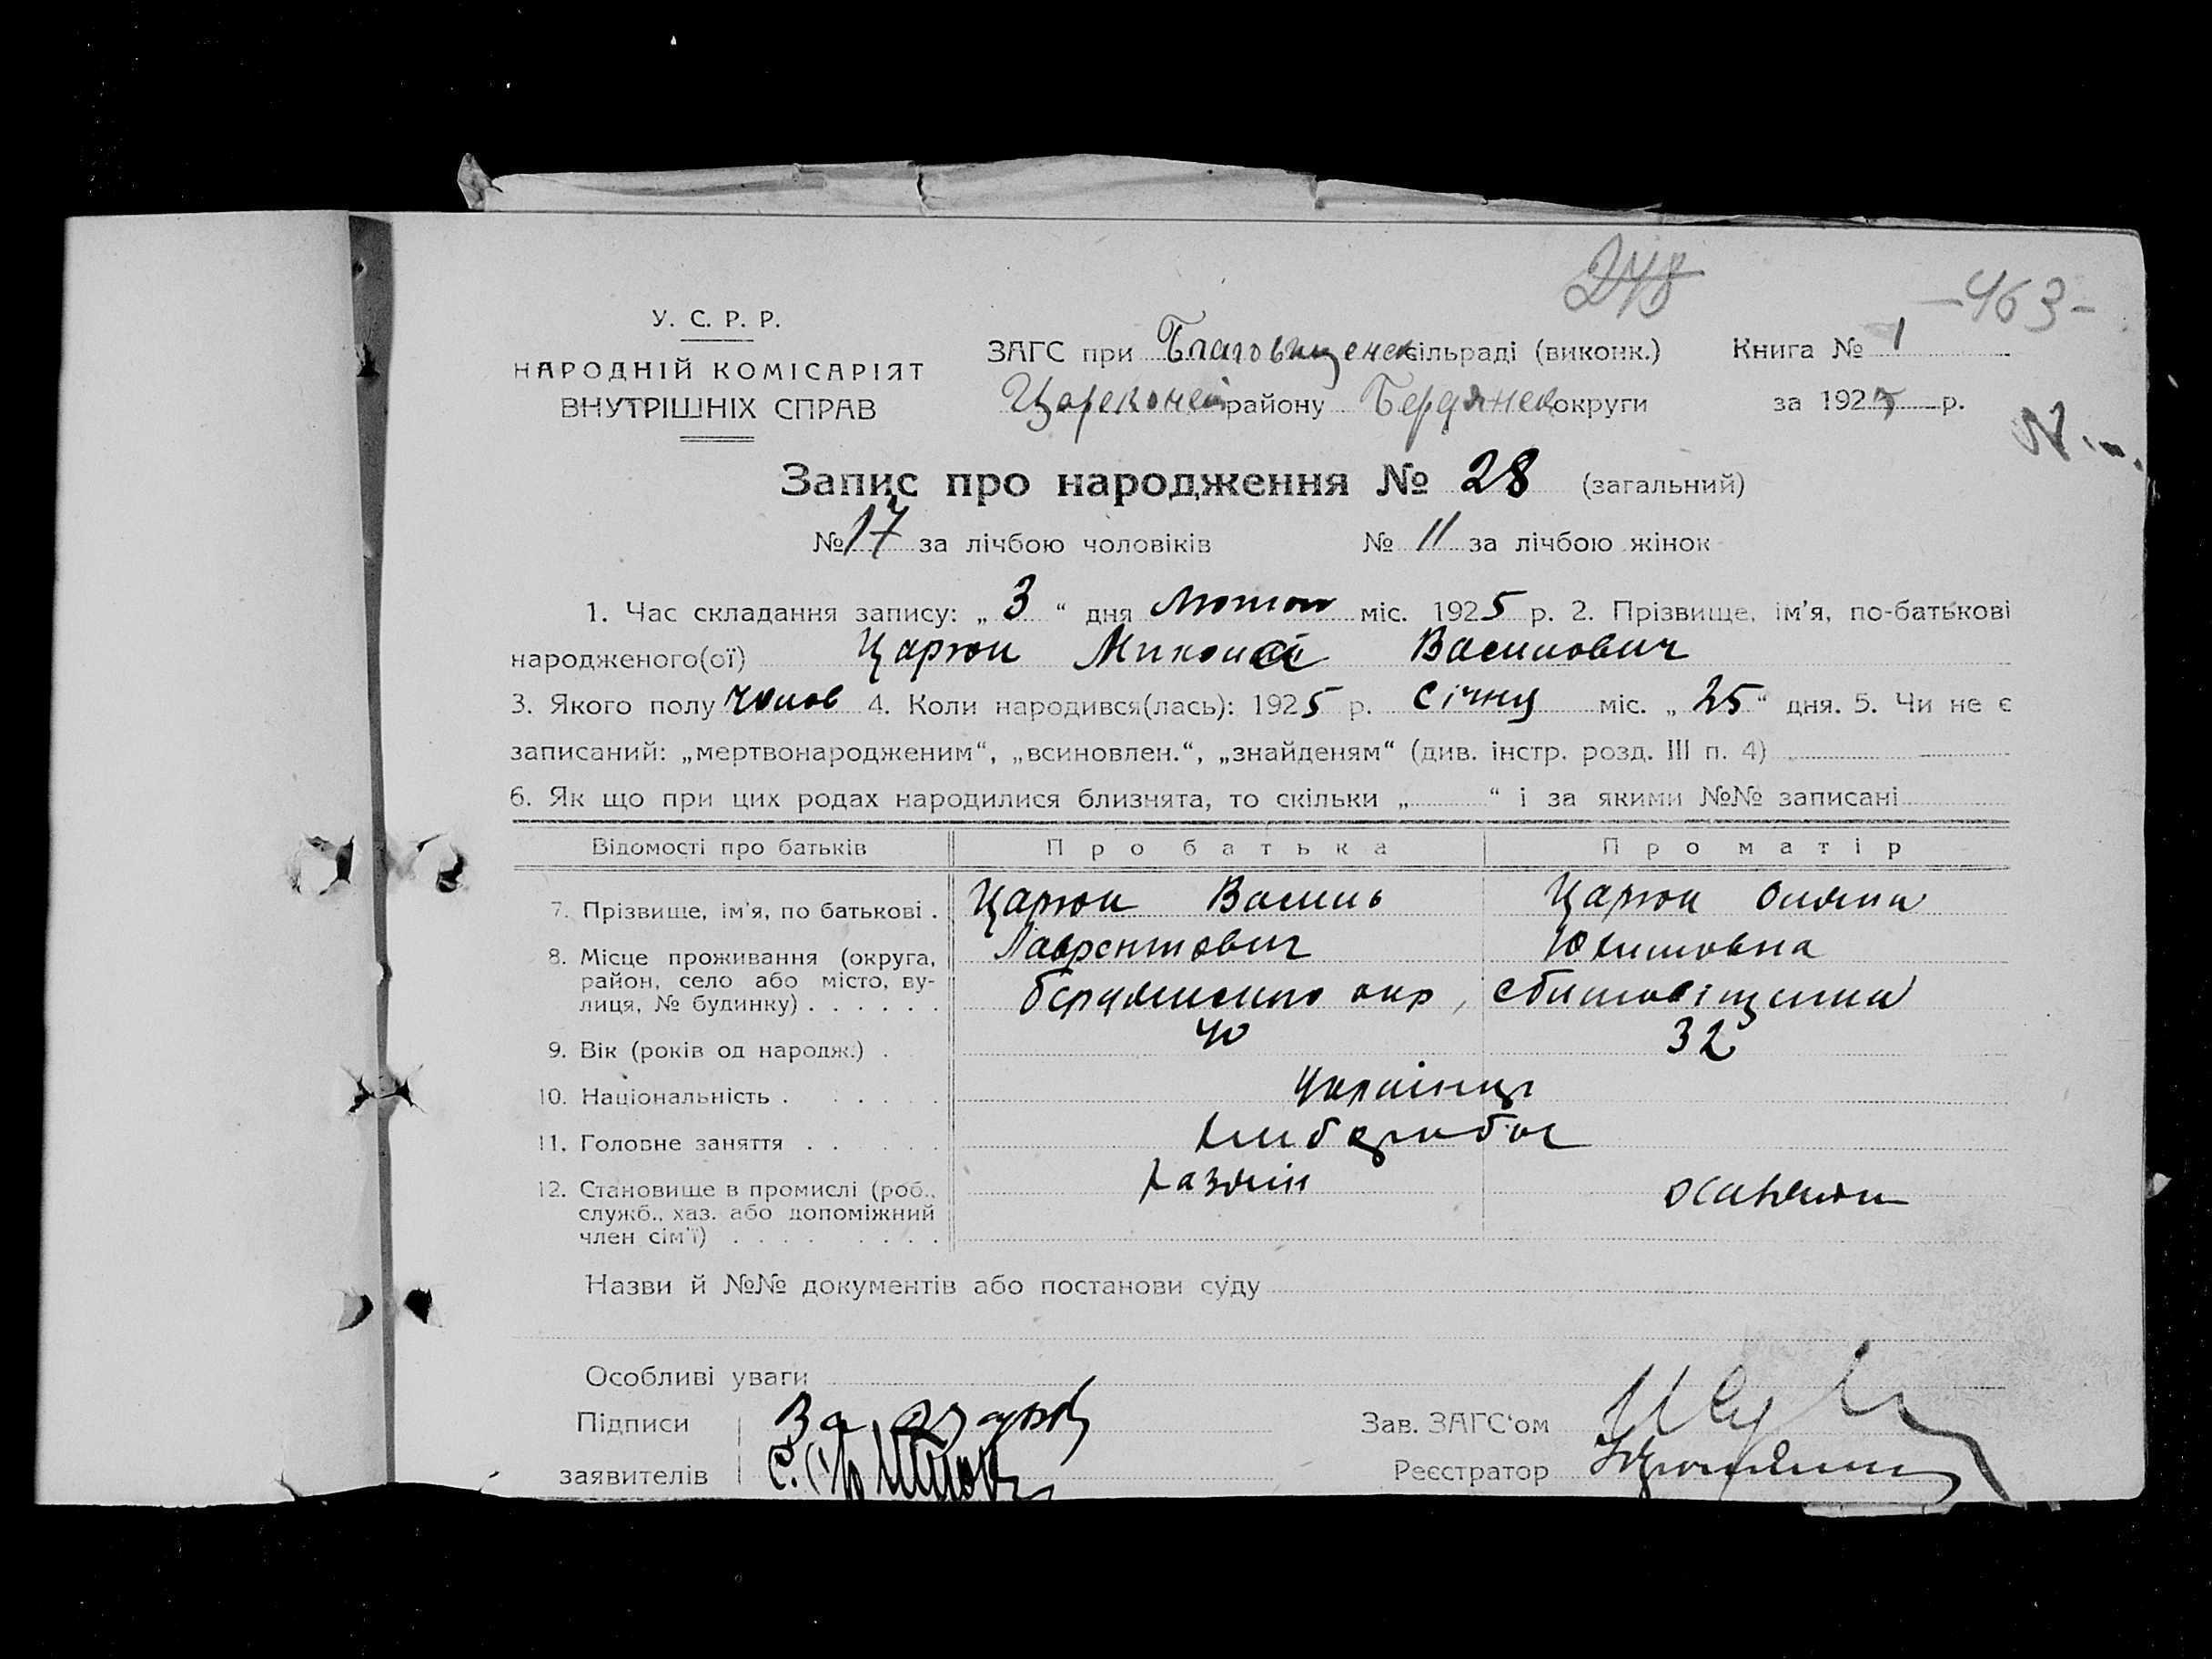 248
-463-
У. С. Р. Р.
НАРОДНІЙ КОМІСАРІЯТ
ВНУТРІШНІХ СПРАВ
ЗАГС при Благовіщенск сільраді (виконк.) Книга № 1
району Бердянск округи за 1925 р.
Запис про народження № 28 (загальний)
№ 17 за лічбою чоловіків № 11 за лічбою жінок
1. Час складання запису: „ 3 “ дня міс. 1925 р. 2. Прізвище, ім’я, по-батькові
народженого(ої) Царюк Микола Василович
3. Якого полу чолов 4. Коли народився(лась): 1925 р. Січня міс. „ 25 “ дня. 5. Чи не є
записаний: „мертвонародженим“, „всиновлен.“, „знайденям“ (див. інстр. розд. III п. 4)
6. Як що при цих родах народилися близнята, то скільки „ “ і за якими №№ записані
Відомості про батьків Про батька Про матір
7. Прізвище, ім’я, по батькові . Царюк Василь Царюк
Лаврентович Юхимовна
8. Місце проживання (округа,
район, село або місто, ву-
лиця, № будинку) . . . . . . окр,
9. Вік (років од народж.) . 40 32
10. Національність . . . . . . Українці
11. Головне заняття . . . . . . хлібороби
12. Становище в промислі (роб.,
служб., хаз. або допоміжний
член сім’ї) . . . . . . . . . хазяїн
Назви й №№ документів або постанови суду
Особливі уваги
Підписи
заявителів
Зав. ЗАГС‘ом
Реєстратор